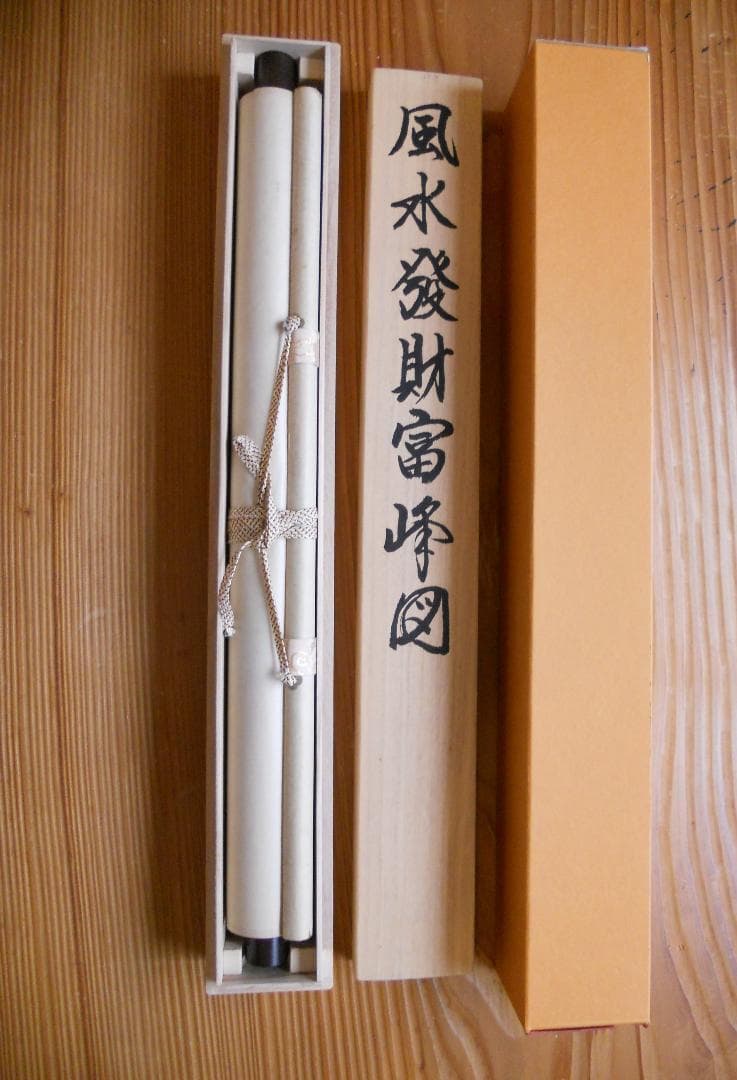 風水發財富峰図